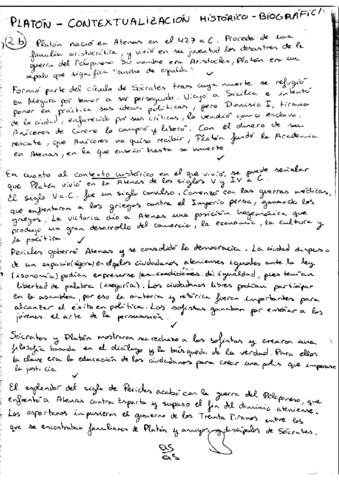 PLATÓN - CONTEXTUALIZACIÓN HISTÓRICO - BIOGRÁFIC
2b) Platón nació en Atenas en el 427 a.C. Procede de una
familia aristocrática, y vivió en su juventud los desastres de la
guerra del Peloponeso. Su nombre era Aristocles, Platón era un
apodo que significa "ancho de espalda".
Formó parte del círculo de Sócrates tras cuya muerte se refugió
en Megara por temor a ser perseguido. Viajó a Sicilia e intentó
poner en práctica sus ideas políticas, pero Dionisio I, tirano
de la ciudad, enfurecido por sus críticas, lo vendió como esclavo.
Anícenes de Cirene lo compró y liberó. Con el dinero de su
rescate, que Anícenes no quiso recibir, Platón fundó la Academia
en Atenas, en la que enseñó hasta su muerte.
En cuanto al contexto histórico en el que vivió, se puede señalar
que Platón vivió en la Atenas de los siglos V y IV a.C.
El siglo V a.C. fue un siglo convulso. Comenzó con las guerras médicas,
que enfrentaron a los griegos contra el Imperio persa, ganando los
griegos. La victoria dio a Atenas una posición hegemónica que
produjo un gran desarrollo del comercio, la economía, la cultura y
la política.
Pericles gobernó Atenas y se consolidó la democracia. La ciudad dispuso
de un espacio (ágora) en el q los ciudadanos atenienses iguales ante la ley
(isonomía) podían expresarse en condiciones de igualdad, pues tenían
libertad de palabra (isegoría). Los ciudadanos libres podían participar
en la asamblea, por eso la oratoria y retórica fueron importantes para
alcanzar el éxito en política. Los sofistas ganaban por enseñar a los
jóvenes el arte de la persuasión
Sócrates y Platón mostraron su rechazo a los sofistas y crearon una
filosofía basada en el diálogo y la búsqueda de la verdad. Para ellos
la clave era la educación de los ciudadanos para crear una polis que imperase
la justicia
El esplendor del siglo de Pericles acabó con la guerra del Peloponeso, que
enfrentó a Atenas contra Esparta y supuso el fin del dominio ateniense.
Los espartanos impusieron el gobierno de los Treinta Tiranos entre los
que se encontraban familiares de Platón y amigos y discípulos de Sócrates.